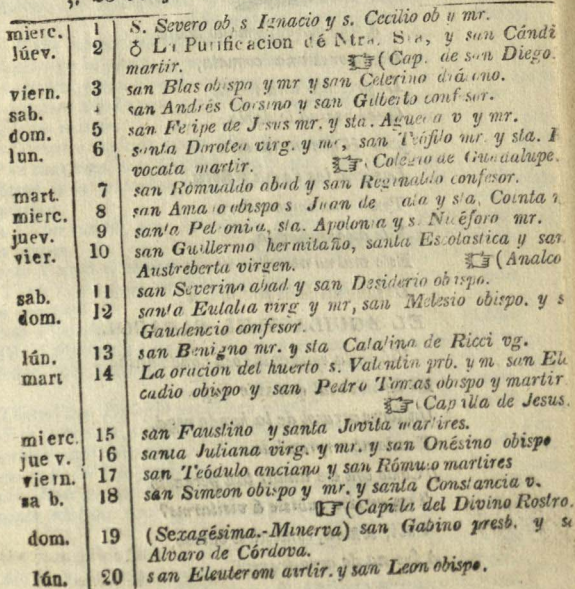 mierc. 1 S. Severo ob, s Ignacio y s. Cecilio ob y mr.
Júev. 2 La Purificacion de Ntra. Sra, y san Cándi
martir. ☞(Cap. de san Diego.
viern. 3 san Blas obispo y mr y san Celerino
sab. san Andrés Corsino y san Gilberto confesor.
dom. 5 san Felipe de Jesus mr. y sta. Agueda v y mr.
lun. 6 santa Dorotea virg. y mr, san Teófilo mr y sta. R
vocata martir. ☞ Colegio de Guadalupe.
mart. 7 san Romualdo abad y san Reginaldo confesor.
mierc. 8 san Amado obispo s Juan de ata y sta, Cointa
juev. 9 santa Petronia, sta. Apolonia y s Nicéforo mr.
vier. 10 san Guillermo hermitaño, santa Escolastica y san
Austreberta virgen. ☞(Analco
sab. 11 san Severino abad y san Desiderio obispo.
dom. 12 santa Eulalia virg y mr, san Melesio obispo. y s
Gaudencio confesor.
lún. 13 san Benigno mr. y sta Catalina de Ricci vg.
mart 14 La oracion del huerto s. Valentin prb. y m san Ele
cadio obispo y san Pedro Tomas obispo y martir
☞(Capilla de Jesus.
mierc. 15 san Faustino y santa Jovita martires.
jue v. 16 santa Juliana virg. y mr. y san Onésino obispo
viern. 17 san Teódulo anciano y san Rómulo martires
sa b. 18 san Simeon obispo y mr. y santa Constancia v.
☞(Capilla del Divino Rostro.
dom. 19 (Sexagésima.-Minerva) san Gabino presb. y s
Alvaro de Córdova.
lún. 20 san Eleuterom airtir. y san Leon obispo.